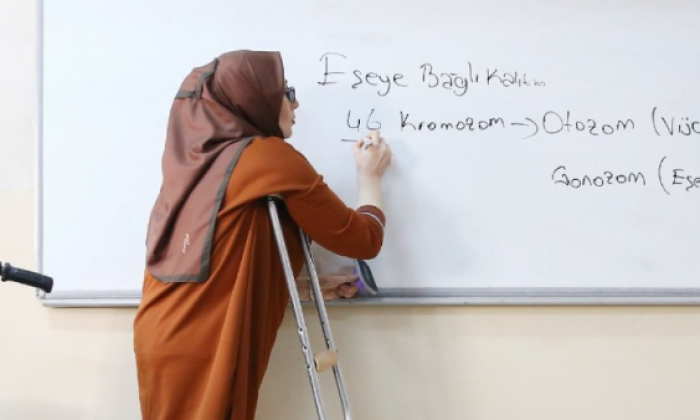 Eşeye Bağlı Kalıtım
46 Kromozom → Otozom (Vüc
Gonozom (Eşe